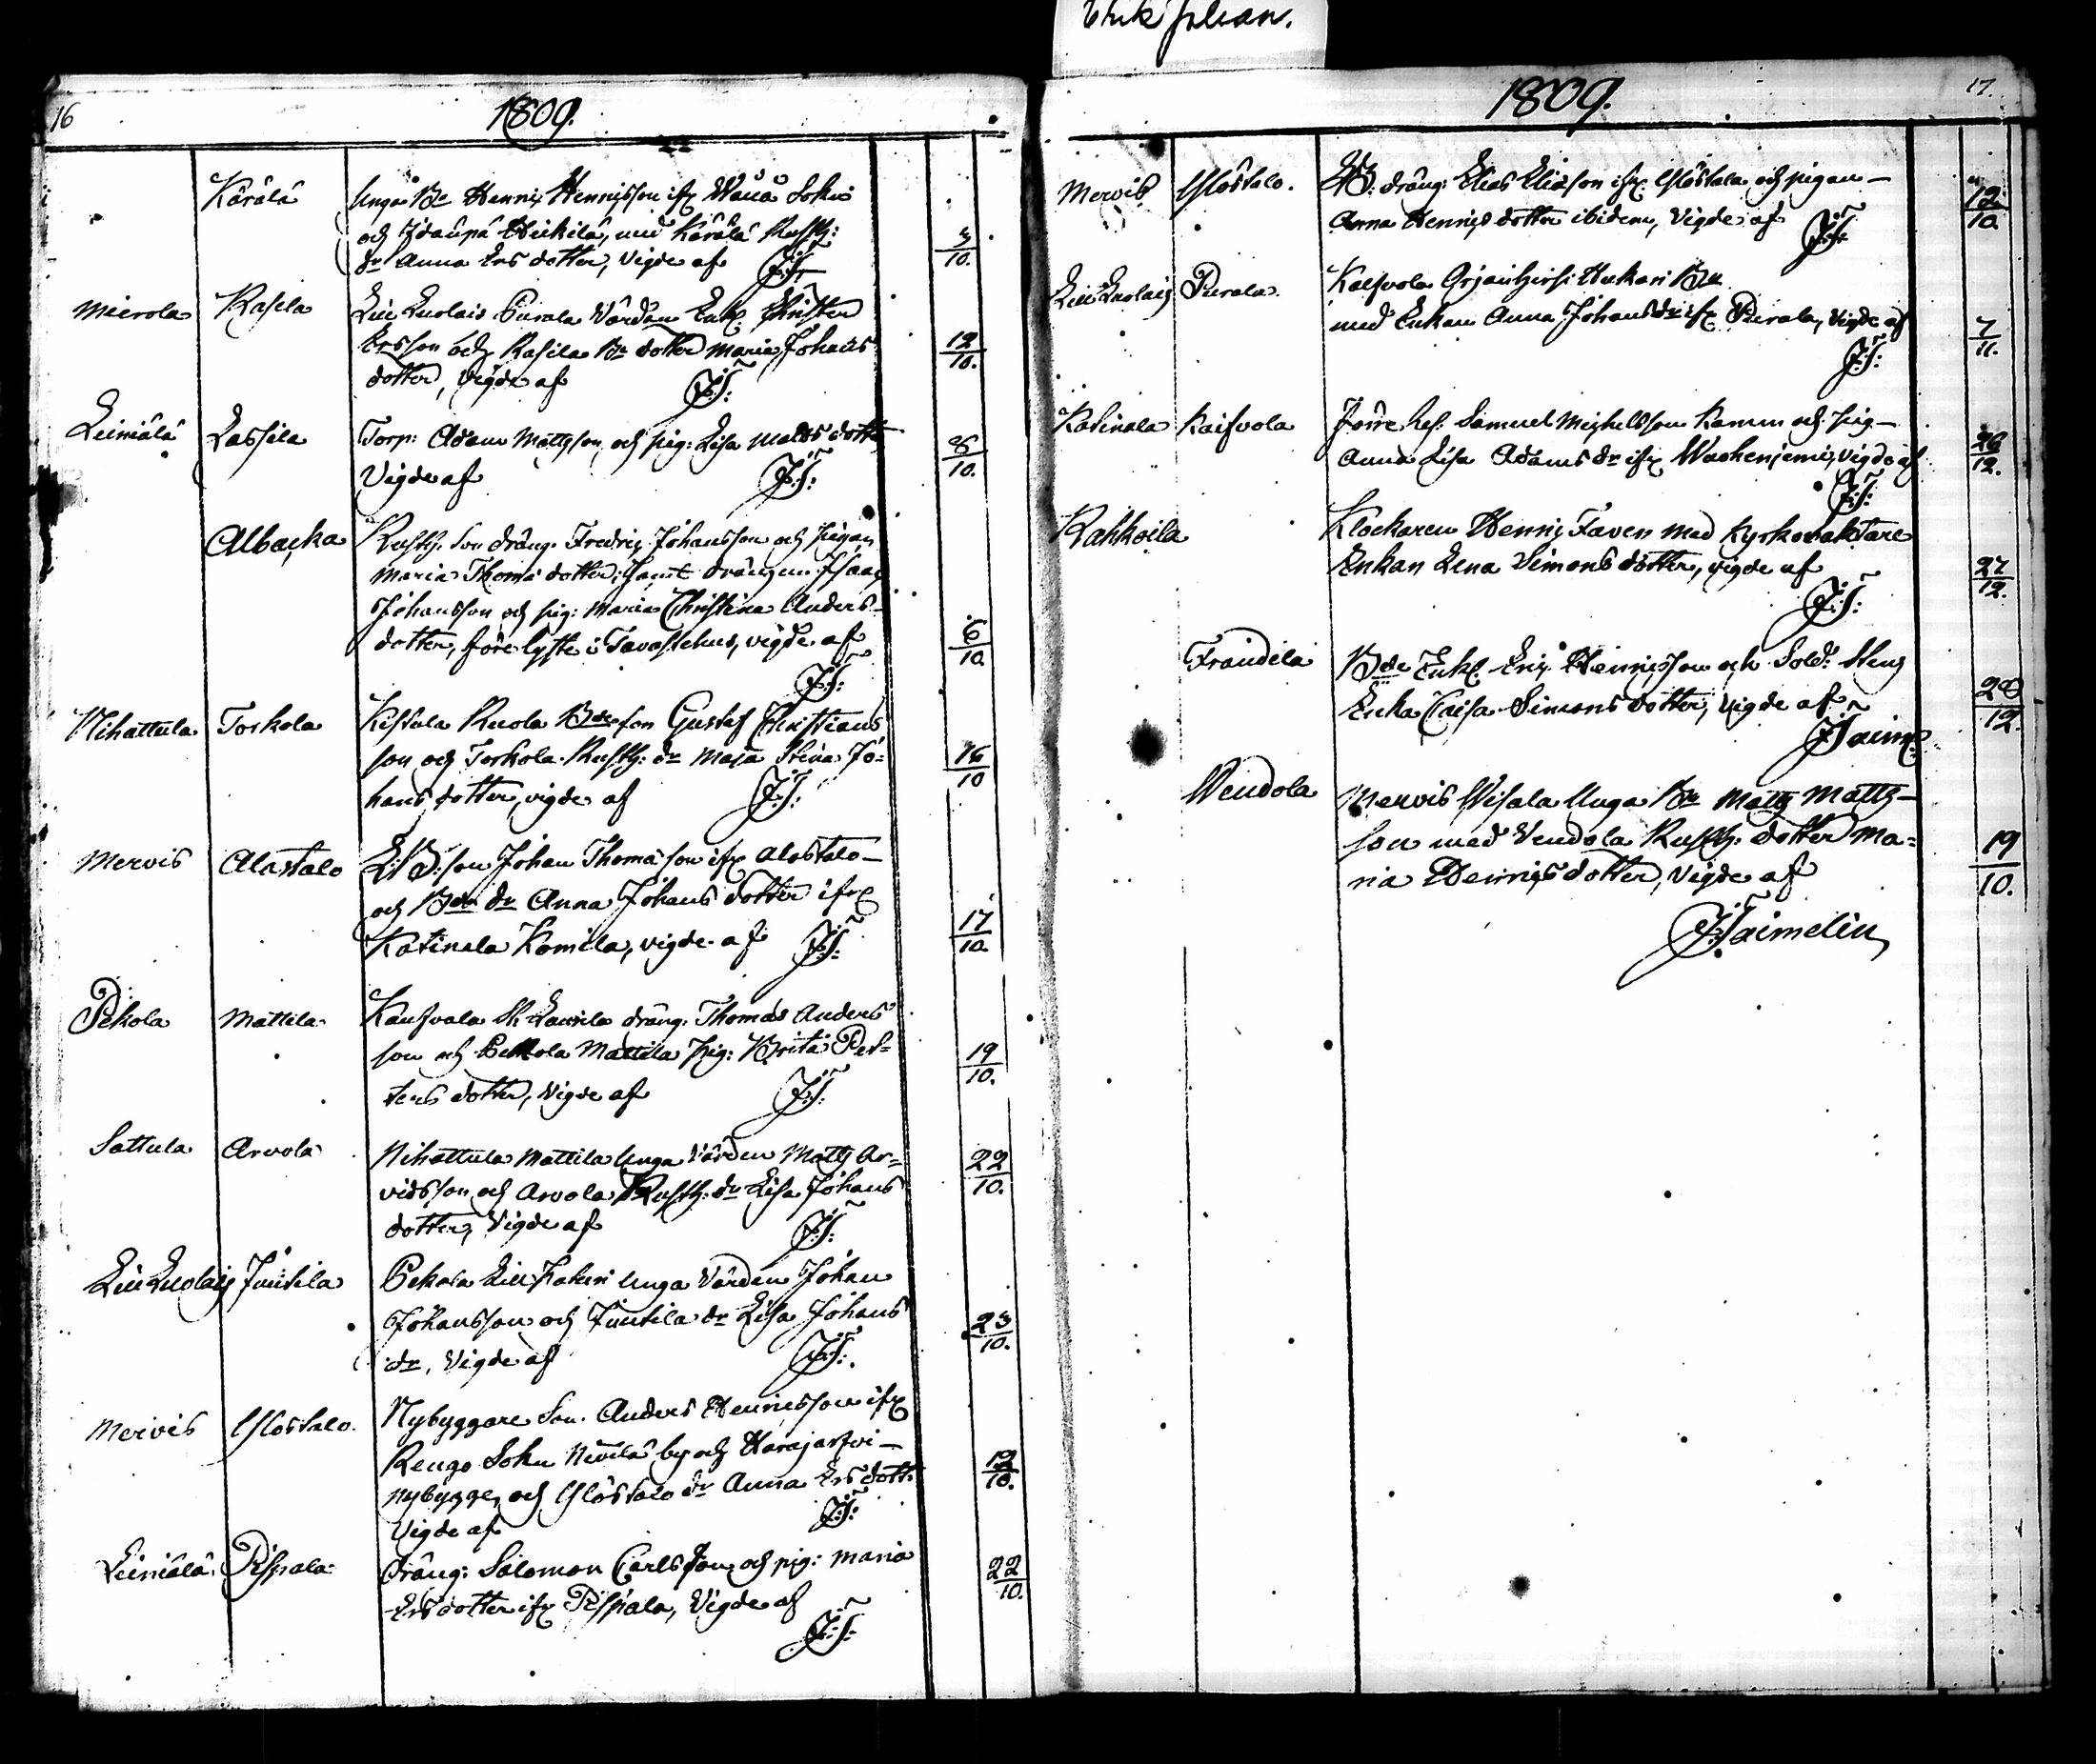 Erik Johan.
16
1809.
Kärälä
Unga Bn Henric Henricsson ifr Wånå Sokn
och Idänpä Heikilä, med Kärälä Rusth:
dr Anna Ers dotter, Vigde af J:T:
3/10.
Mierola Rasila
Lill Luolais Purala Värden Enkl Christer
Ersson och Rasila Bn dotter Maria Johans
dotter, vigde af J:T:
12/10.
Leiniälä Lassila
Torp: Adam Mattsson och pig: Lisa Matts dotter
Vigde af J:T:
8/10.
Albacka
Rusth. Son dräng. Fredric Johansson och pigan
Maria Thoma dotter; samt drängen Isaac
Johansson och pig: Maria Christina Anders
dotter, förelyste i Tavastehus, vigde af
J:T:
6/10
Nihattula Torkola
Kistula Ruola Bde son Gustaf Christians
son och Torkola Rusth: dr Maja Stina Jo=
hans dotter, vigde af J:T:
16/10
Mervis Alastalo
L:B: son Johan Thomason ifr Alastalo
och Bde dr Anna Johans dotter ifr
Katinala Komila, vigde af J:T:
17/10.
Pekola Mattila
Kaufvala St Laurila dräng: Thomas Anders
son och Pekkola Mattila pig: Brita Pet=
ters dotter, Vigde af J:T:
19/10.
Sattula Arvola
Nihattula Mattila Unga Värden Matts Ar=
vidsson och Arvola Rusth: dr Lisa Johans
dotter, Vigde af J:T:
22/10.
Lill Luolais Juutila
Pekola Lill Unga Värden Johan
Johansson och Juutila dr Lisa Johans
dr, Vigde af J:T:
23/10.
Mervis Ylöstalo.
Nybyggare Son. Anders Henricsson ifr
Rengo Sokn Nivilä by och Harajarfvi
nybygge, och Ylöstalo dr Anna Ers dott:
Vigde af J:T:
12/10.
Leiniälä Pispala
Dräng: Salomon Carlsson och pig: Maria
Ersdotter ifr Pispala, Vigde af
J:T:
22/10.
1809.
17.
Mervis Ylöstalo.
dräng: Elias Eliasson ifr Ylöstalo och pigan
Anna Henrics dotter ibidem, Vigde af J:T:
12/10
Lill Luolais Purala
Kalfvola Orjanhirsi Heikari Bn
med Enkan Anna Johans dr ifr Purala, vigde af
J:T:
7/11.
Katinala Kaifvola
Förre Ref. Samuel Michelsson Kamm och pig
Anna Lisa Adams dr ifr Wuohenjemi, vigde af
J:T:
26/12.
Kahkoila
Klockaren Henric Faven med Kyrkovaktare
Enkan Lena Simons dotter, vigde af
J:T:
27/12.
Frandela
Bde Enkl. Eric Henricsson och Sold: Steng
Enka Caisa Simons dotter, Vigde af
J:Taim:
28/12.
Wendola
Mervis Wisala Unga Bn Matts Matts
son med Vendola Rusth: dotter Ma=
ria Henrics dotter, Vigde af
J:Taimelin
19/10.